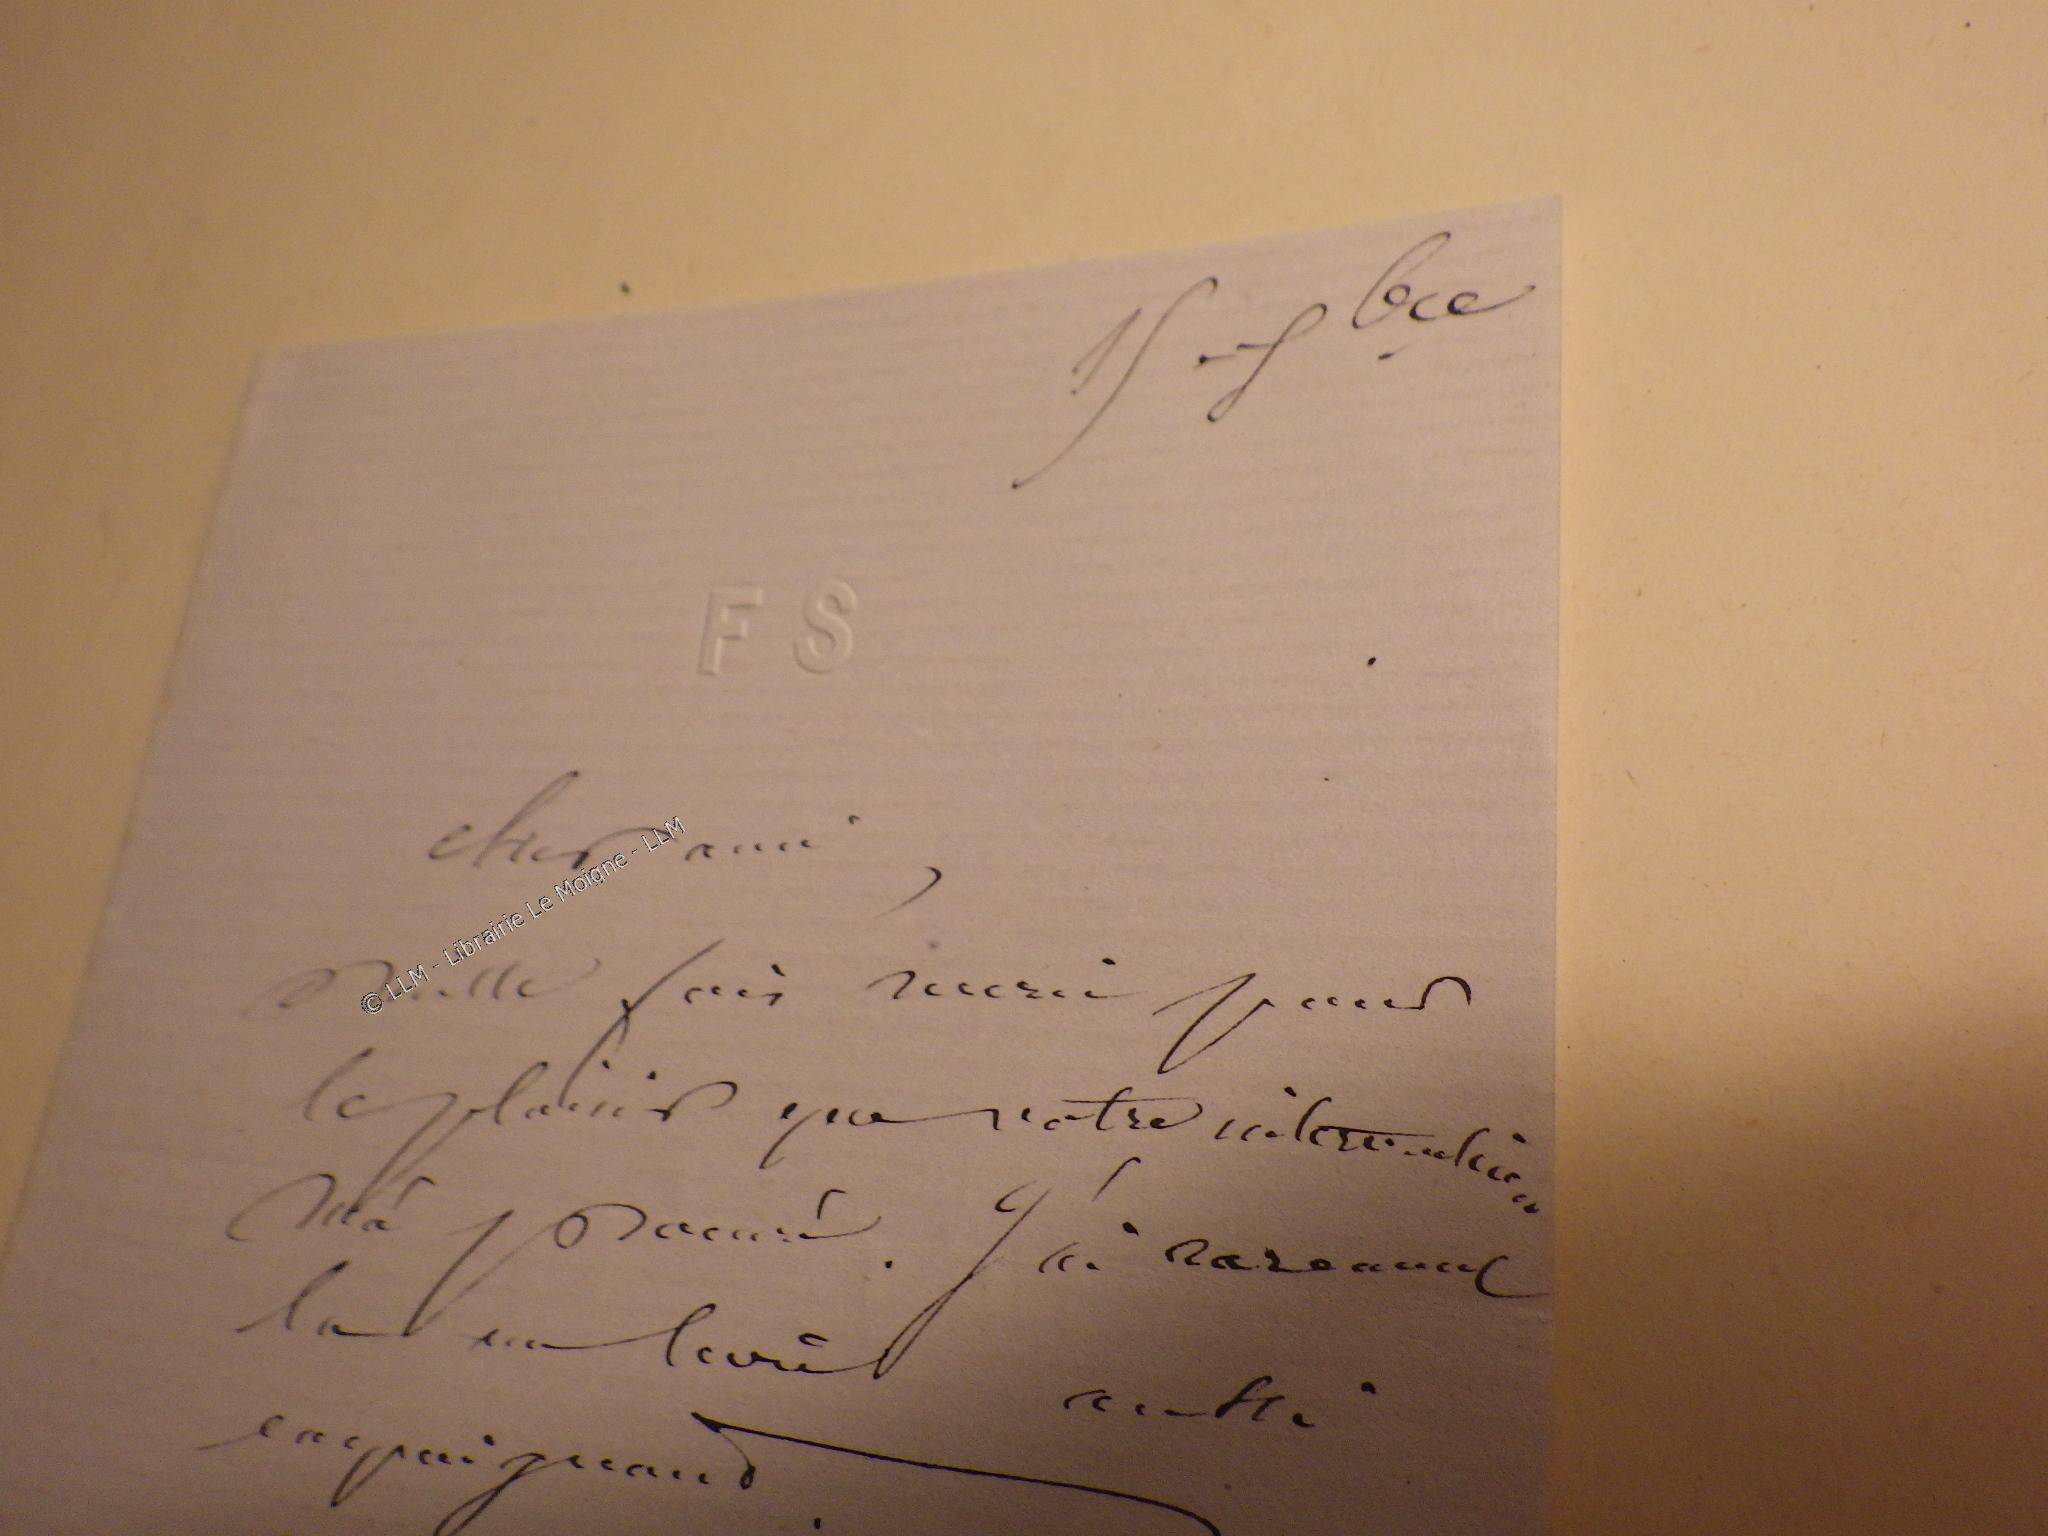 15 - 7bre
F S
cher ami,
Mille fois merci pour
le plaisir que votre intervention
m'a procuré. J'ai rarement
lu un livre aussi
empoignant.
© LLM - Librairie Le Moigne - LLM